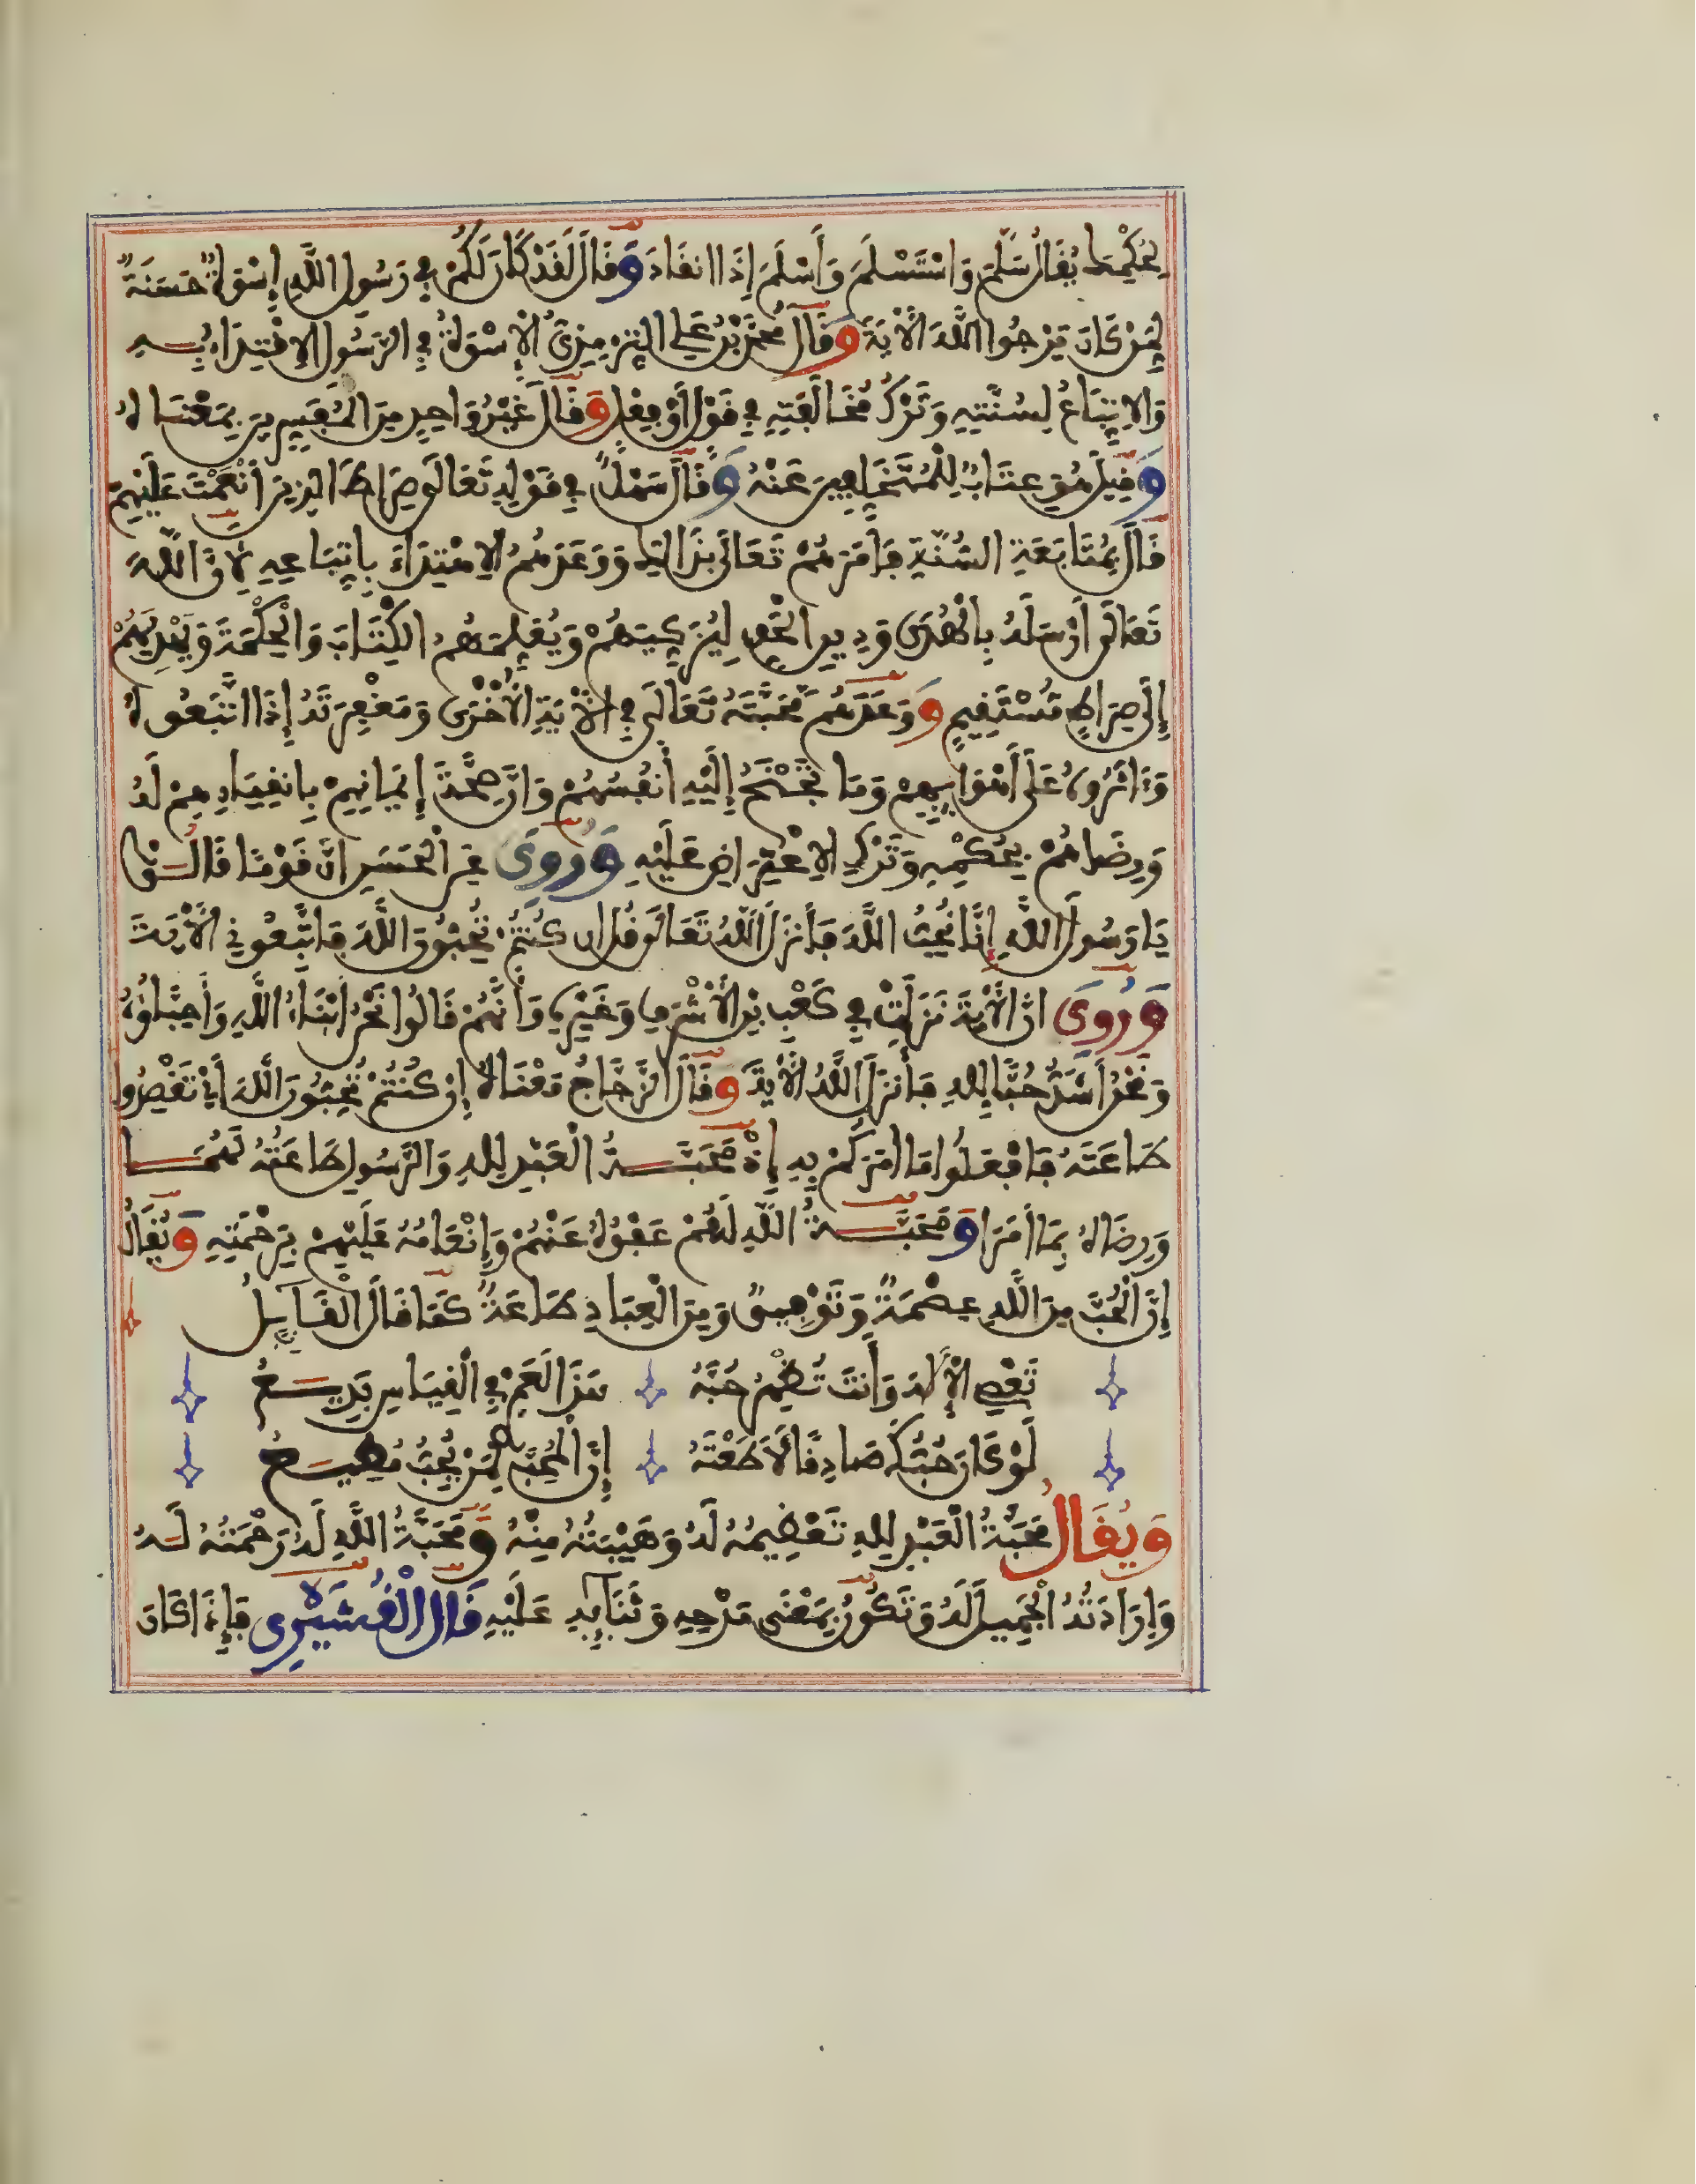 لِحُكْمِكَ يُقَالُ سَلَّمَ وَاسْتَسْلَمَ وَأَسْلَمَ إِذَا انقَادَ وَقَالَ لَقَدْ كَانَ لَكُمْ فِي رَسُولِ اللَّهِ إِسْوَةٌ حَسَنَةٌ
لِمَن كَانَ يَرْجُوا اللَّهَ الْآيَةَ وَقَالَ مُحَمَّدُ بْنُ عَلِي التِّرْمِذِيُّ الْإِسْوَةُ فِي الرَّسُولِ الِاقْتِدَاءُ بِهِ
وَالِاتِّبَاعُ لِسُنَّتِهِ وَتَرْكُ مُخَالَفَتِهِ فِي قَوْلٍ أَوْ فِعْلٍ وَقَالَ غَيْرُ وَاحِدٍ مِنَ الْمُفَسِّرِينَ بِمَعْنَاهُ
وَقِيلَ هُوَ عِتَابٌ لِلْمُتَخَلِّفِينَ عَنْهُ وَقَالَ سَهْلٌ فِي قَوْلِهِ تَعَالَى صِرَاطَ الَّذِينَ أَنْعَمْتَ عَلَيْهِمْ
قَالَ بِمُتَابَعَةِ السُّنَّةِ فَأَمَرَهُمْ تَعَالَى بِذَالِكَ وَوَعَدَهُمُ الِاهْتِدَاءَ بِاتِّبَاعِهِ لِأَنَّ اللَّهَ
تَعَالَى أَرْسَلَهُ بِالْهُدَى وَدِينِ الْحَقِّ لِيُزَكِّيَهُمْ وَيُعَلِّمَهُمُ الْكِتَابَ وَالْحِكْمَةَ وَيَهْدِيَهُمْ
إِلَى صِرَاطٍ مُسْتَقِيمٍ وَوَعَدَهُمْ مَحَبَّتَهُ تَعَالَى فِي الْآيَةِ الْأُخْرَى وَمَغْفِرَتَهُ إِذَا اتَّبَعُوهُ
وَءَاثَرُوهُ عَلَى أَهْوَائِهِمْ وَمَا تَجْنَحُ إِلَيْهِ أَنفُسُهُمْ وَأَنَّ صِحَّةَ إِيمَانِهِمْ بِانقِيَادِهِمْ لَهُ
وَرِضَاهُمْ بِحُكْمِهِ وَتَرْكِ الِاعْتِرَاضِ عَلَيْهِ وَرُوِيَ عَنِ الْحَسَنِ انَّ قَوْمًا قَالُوا
يَا رَسُولَ اللَّهِ إِنَّا نُحِبُّ اللَّهَ فَأَنزَلَ اللَّهُ تَعَالَى قُلِ ان كُنتُمْ تُحِبُّونَ اللَّهَ فَاتَّبِعُونِي الْآيَةَ
وَرُوِيَ انَّ الْآيَةَ نَزَلَتْ فِي كَعْبِ بْنِ الْأَشْرَفِ وَغَيْرِهِ وَأَنَّهُمْ قَالُوا نَحْنُ أَبْنَاءُ اللَّهِ وَأَحِبَّاؤُهُ
وَنَحْنُ أَشَدُّ حُبًّا لِلهِ فَأَنزَلَ اللَّهُ الْآيَةَ وَقَالَ الزَّجَّاجُ مَعْنَاهُ إِن كُنْتُمْ تُحِبُّونَ اللَّهَ أَيْ تَقْصِدُوا
طَاعَتَهُ فَافْعَلُوا مَا أَمَرَكُمْ بِهِ إِذْ مَحَبَّةُ الْعَبْدِ لِلهِ وَالرَّسُولِ طَاعَتُهُ لَهُمَا
وَرِضَاهُ بِمَا أَمَرَا وَمَحَبَّةُ اللَّهِ لَهُمْ عَفْوُهُ عَنْهُمْ وَإِنْعَامُهُ عَلَيْهِمْ بِرَحْمَتِهِ وَيُقَالُ
إِنَّ الْحُبَّ مِنَ اللَّهِ عِصْمَةٌ وَتَوْفِيقٌ وَمِنَ الْعِبَادِ طَاعَةٌ كَمَا قَالَ الْقَائِلُ
تَعْصِي الْإِلَهَ وَأَنتَ تُظْهِرُ حُبَّهُ هَذَا لَعَمْرِي فِي الْقِيَاسِ بَدِيعُ
لَوْ كَانَ حُبُّكَ صَادِقًا لَأَطَعْتَهُ إِنَّ الْمُحِبَّ لِمَنْ يُحِبُّ مُطِيعُ
وَيُقَالُ مَحَبَّةُ الْعَبْدِ لِلهِ تَعْظِيمُهُ لَهُ وَهَيْبَتُهُ مِنْهُ وَمَحَبَّةُ اللَّهِ لَهُ رَحْمَتُهُ لَهُ
وَإِرَادَتُهُ الْجَمِيلَ لَهُ وَتَكُونُ بِمَعْنَى مَدْحِهِ وَثَنَائِهِ عَلَيْهِ قَالَ الْقُشَيْرِي فَإِذَا كَانَ